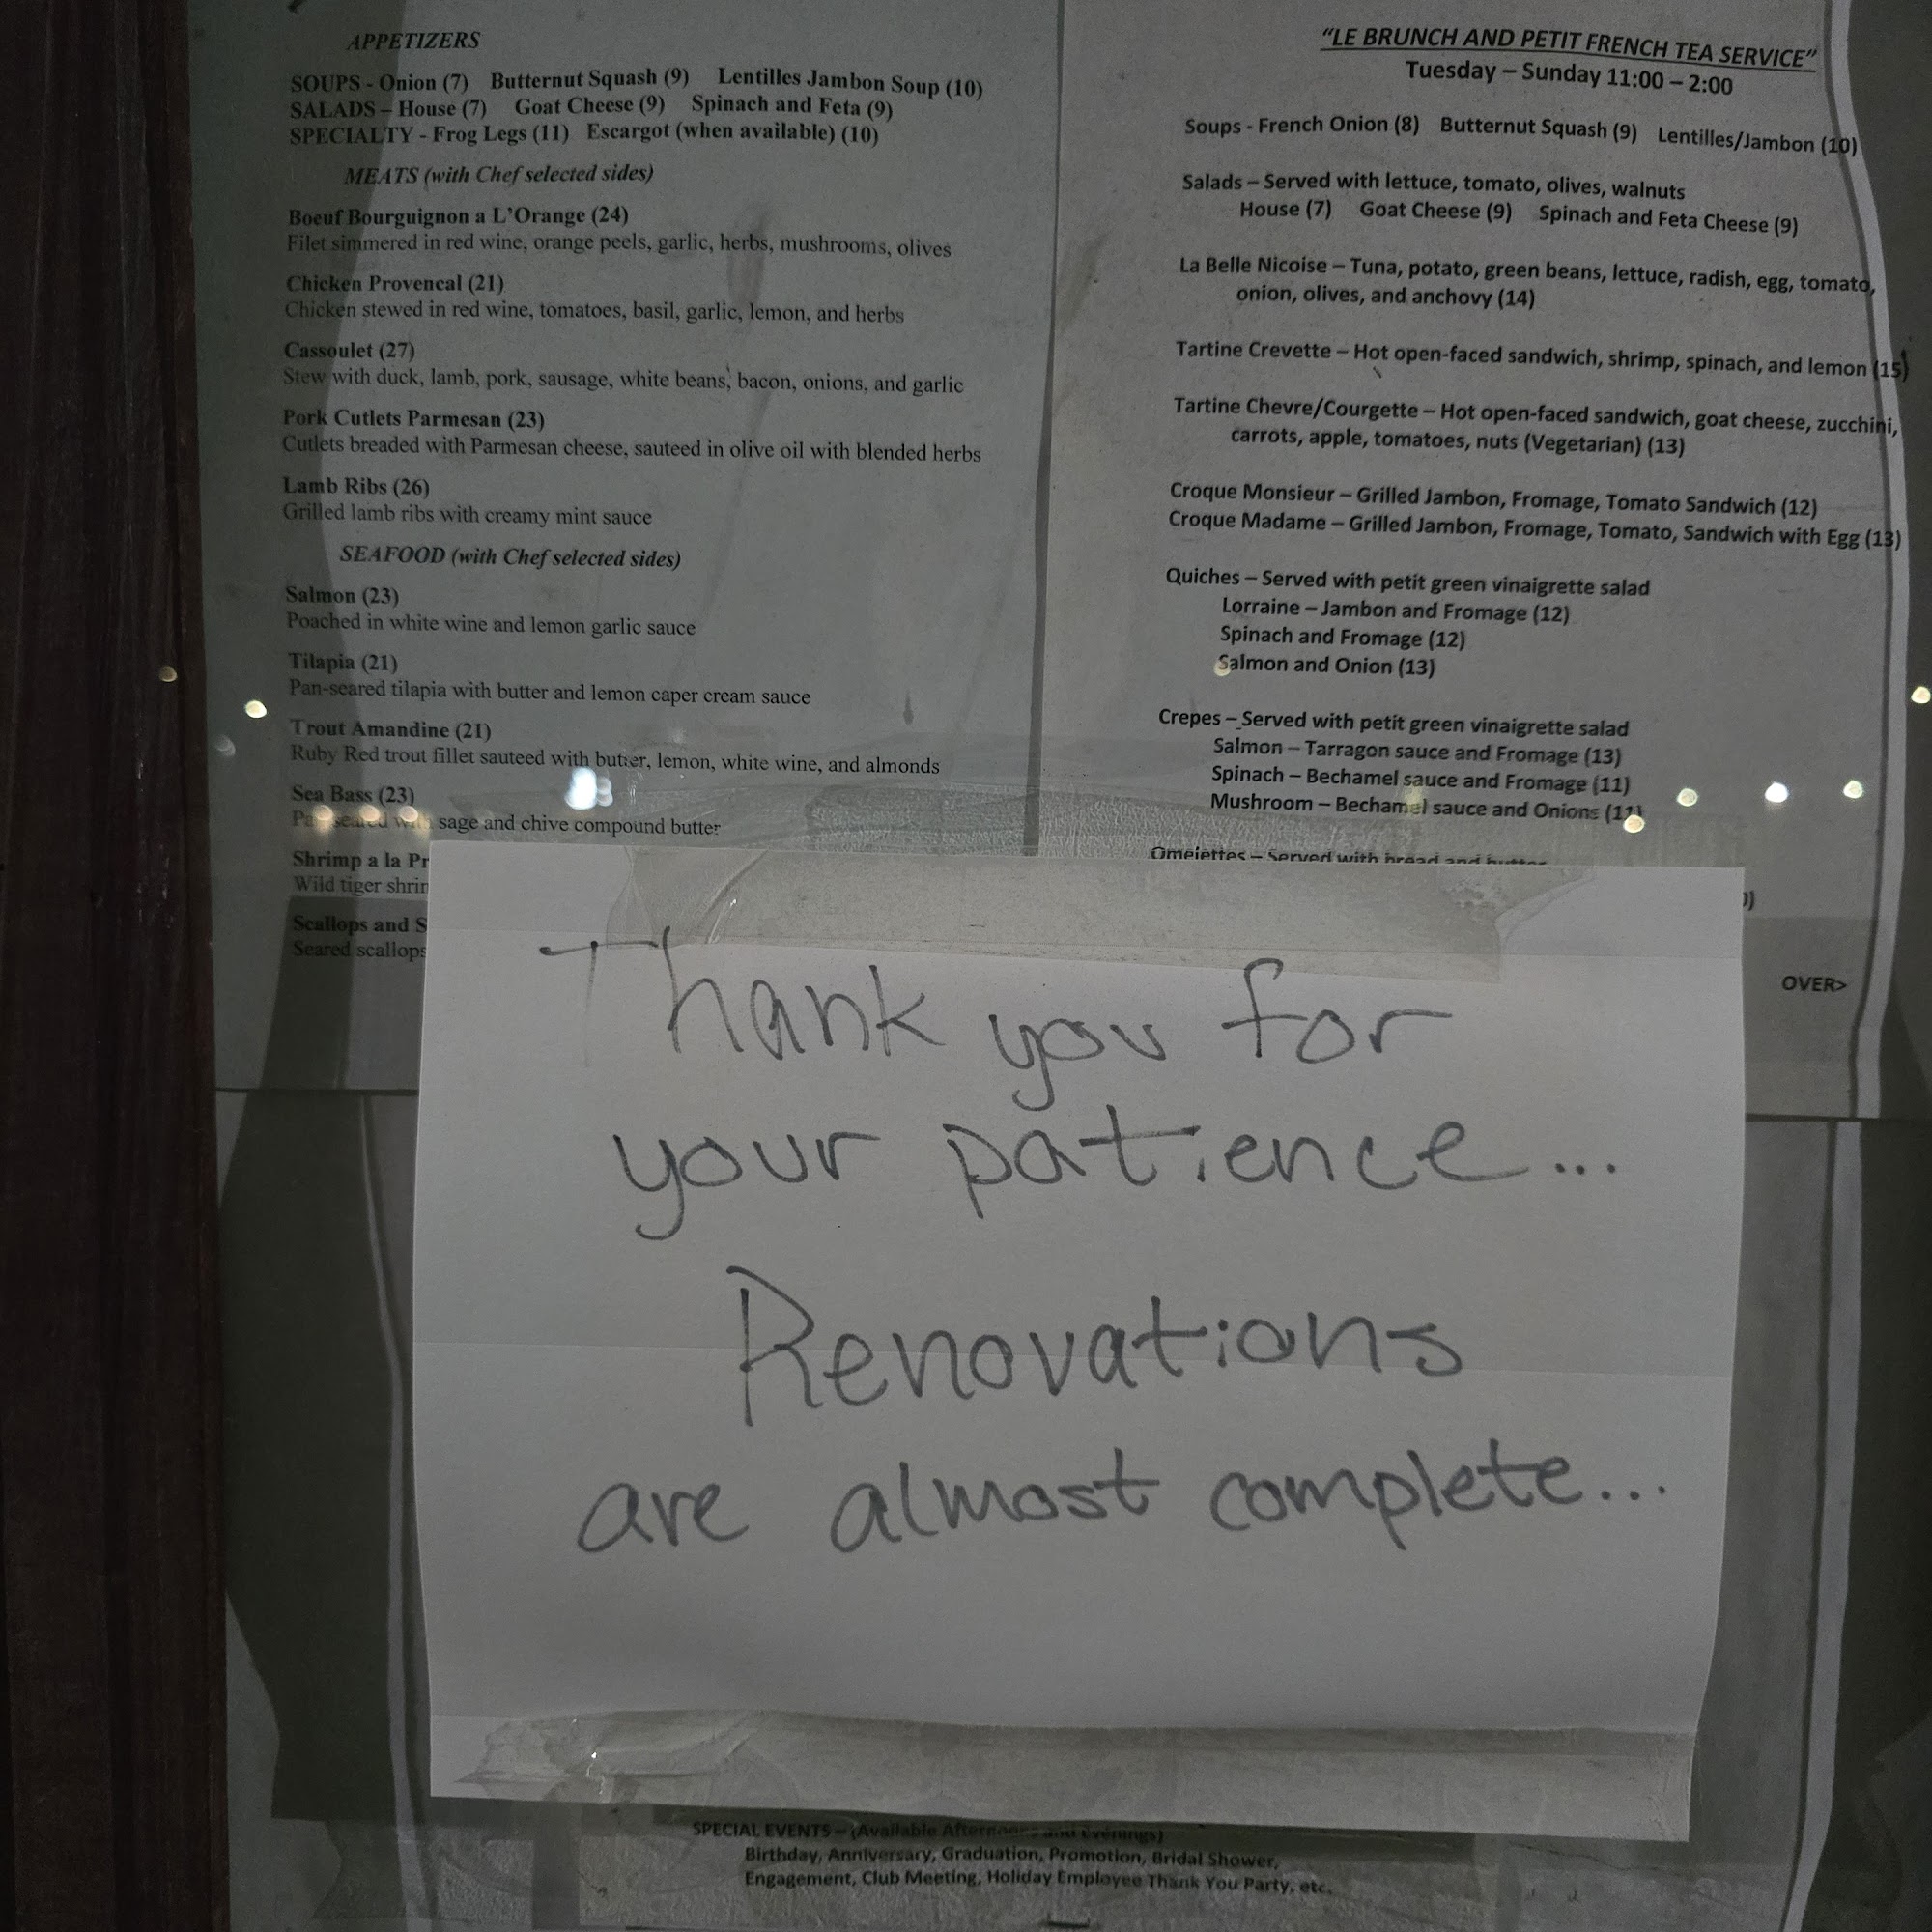 APPETIZERS
SOUPS - Onion (7) Butternut Squash (9) Lentilles Jambon Soup (10)
SALADS – House (7) Goat Cheese (9) Spinach and Feta (9)
SPECIALTY - Frog Legs (11) Escargot (when available) (10)
MEATS (with Chef selected sides)
Boeuf Bourguignon a L'Orange (24)
Filet simmered in red wine, orange peels, garlic, herbs, mushrooms, olives
Chicken Provencal (21)
Chicken stewed in red wine, tomatoes, basil, garlic, lemon, and herbs
Cassoulet (27)
Stew with duck, lamb, pork, sausage, white beans, bacon, onions, and garlic
Pork Cutlets Parmesan (23)
Cutlets breaded with Parmesan cheese, sauteed in olive oil with blended herbs
Lamb Ribs (26)
Grilled lamb ribs with creamy mint sauce
SEAFOOD (with Chef selected sides)
Salmon (23)
Poached in white wine and lemon garlic sauce
Tilapia (21)
Pan-seared tilapia with butter and lemon caper cream sauce
Trout Amandine (21)
Ruby Red trout fillet sauteed with butter, lemon, white wine, and almonds
Sea Bass (23)
Pan-seared with sage and chive compound butter
Shrimp a la Pr
Wild tiger shrim
Scallops and S
Seared scallops
"LE BRUNCH AND PETIT FRENCH TEA SERVICE"
Tuesday – Sunday 11:00 – 2:00
Soups - French Onion (8) Butternut Squash (9) Lentilles/Jambon (10)
Salads – Served with lettuce, tomato, olives, walnuts
House (7) Goat Cheese (9) Spinach and Feta Cheese (9)
La Belle Nicoise – Tuna, potato, green beans, lettuce, radish, egg, tomato,
onion, olives, and anchovy (14)
Tartine Crevette – Hot open-faced sandwich, shrimp, spinach, and lemon (15)
Tartine Chevre/Courgette – Hot open-faced sandwich, goat cheese, zucchini,
carrots, apple, tomatoes, nuts (Vegetarian) (13)
Croque Monsieur – Grilled Jambon, Fromage, Tomato Sandwich (12)
Croque Madame – Grilled Jambon, Fromage, Tomato, Sandwich with Egg (13)
Quiches – Served with petit green vinaigrette salad
Lorraine – Jambon and Fromage (12)
Spinach and Fromage (12)
Salmon and Onion (13)
Crepes – Served with petit green vinaigrette salad
Salmon – Tarragon sauce and Fromage (13)
Spinach – Bechamel sauce and Fromage (11)
Mushroom – Bechamel sauce and Onions (11)
Omelettes – Served with bread and butter
OVER>
Thank you for
your patience...
Renovations
are almost complete...
SPECIAL EVENTS – (Available Afternoons and Evenings)
Birthday, Anniversary, Graduation, Promotion, Bridal Shower,
Engagement, Club Meeting, Holiday Employee Thank You Party, etc.